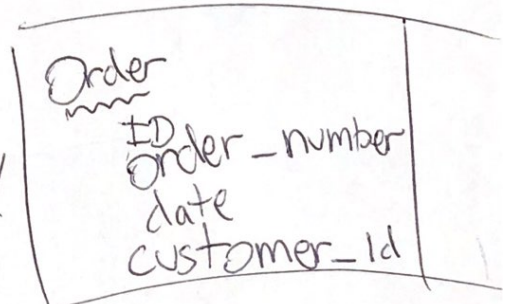 Order
ID
order_number
date
customer_id